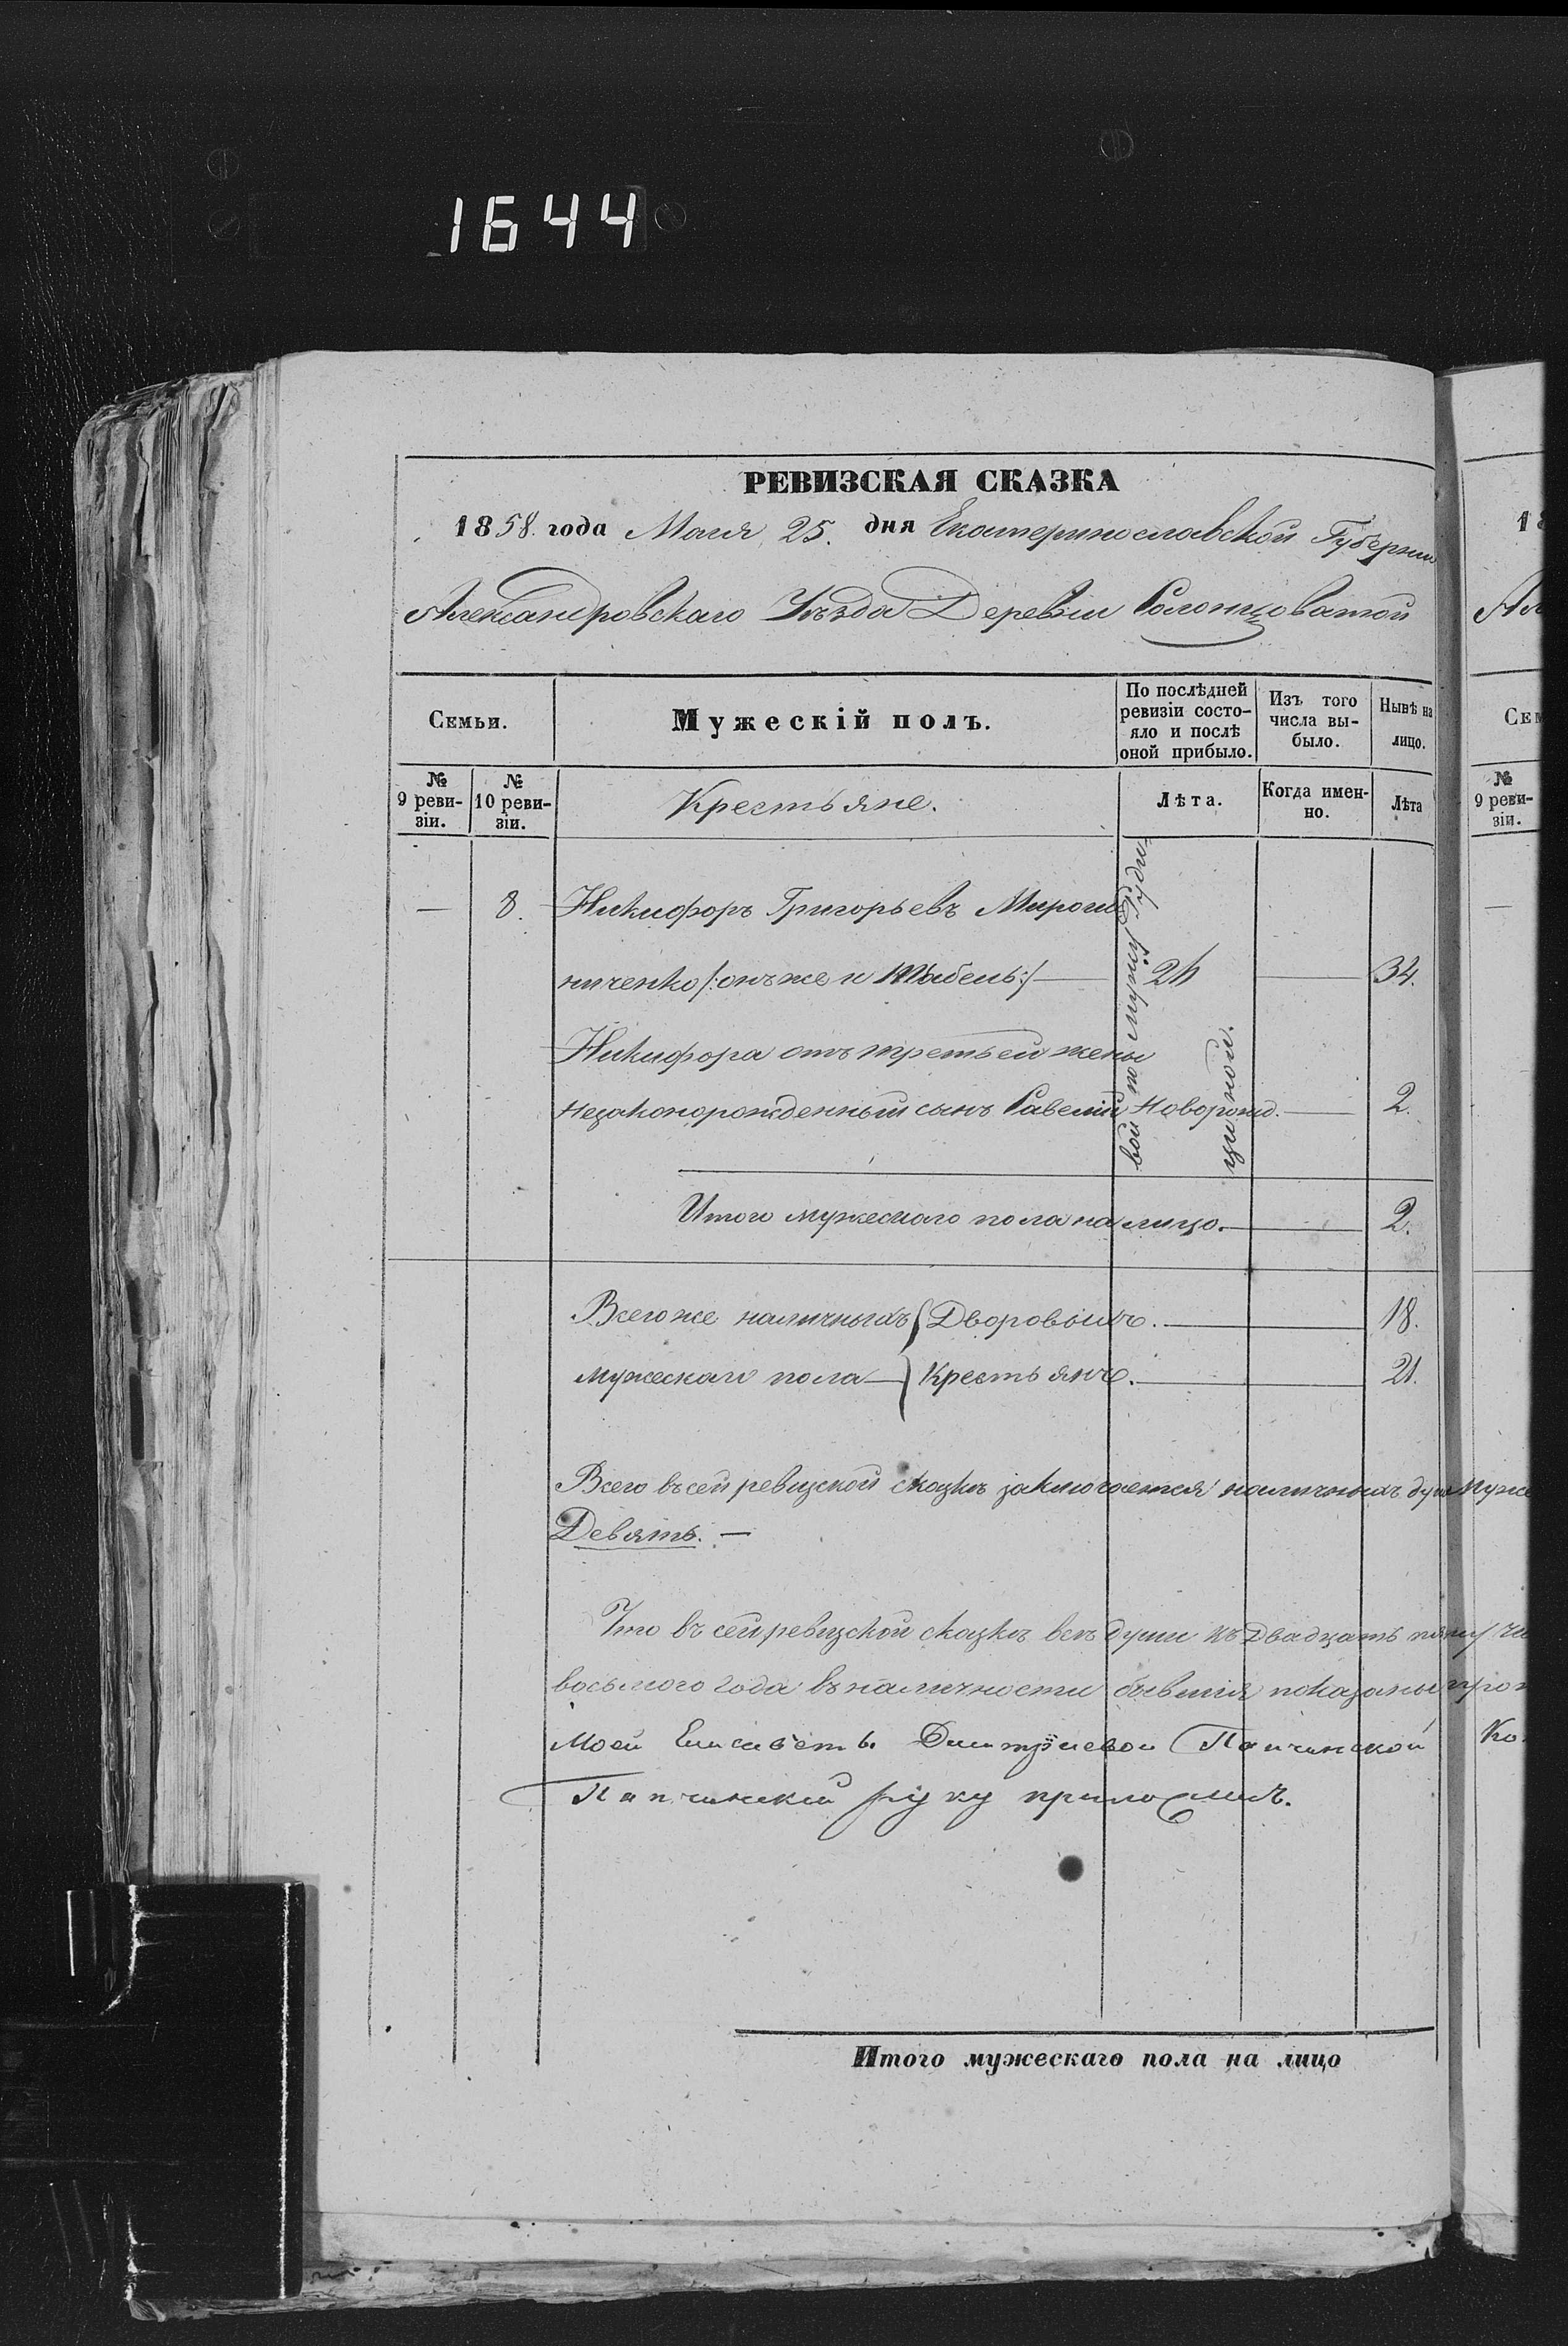 1644
РЕВИЗСКАЯ СКАЗКА
1858. года Маия 25. дня Екатеринославской Губернии
Александровскаго Уѣзда Деревни Солонцоватой
Семьи.
Мужескій полъ.
По послѣдней ревизіи состояло и послѣ оной прибыло.
Изъ того числа выбыло.
Нынѣ на лицо.
№ 9 ревизіи.
№ 10 ревизіи.
Крестьяне.
Лѣта.
Когда именно.
Лѣта
— 8. Никифоръ Григорьевъ Мирош
ниченко /:онъ же и Шабень:/ — 24 — 34.
Никифора отъ третьей жены
незаконорожденный сынъ Савелій Новорожд. — 2.
вой по мужу
Итого мужескаго пола на лицо. — 2.
Всего же наличныхъ { Дворовыхъ. — 18.
мужескаго пола — } Крестьянъ. — 21.
Всего въ сей ревизской сказкѣ заключается наличныхъ душъ муже
Девять. —
Что въ сей ревизской сказкѣ всѣ души къ Двадцать пятму чи
восьмого года въ наличности бывшія показаны и про
Моей Елисаветы Дмитріевой Папчинской
Папчинскій руку приложилъ.
Итого мужескаго пола на лицо
18
Ал
Сем
№ 9 ревизіи.
—
Ко